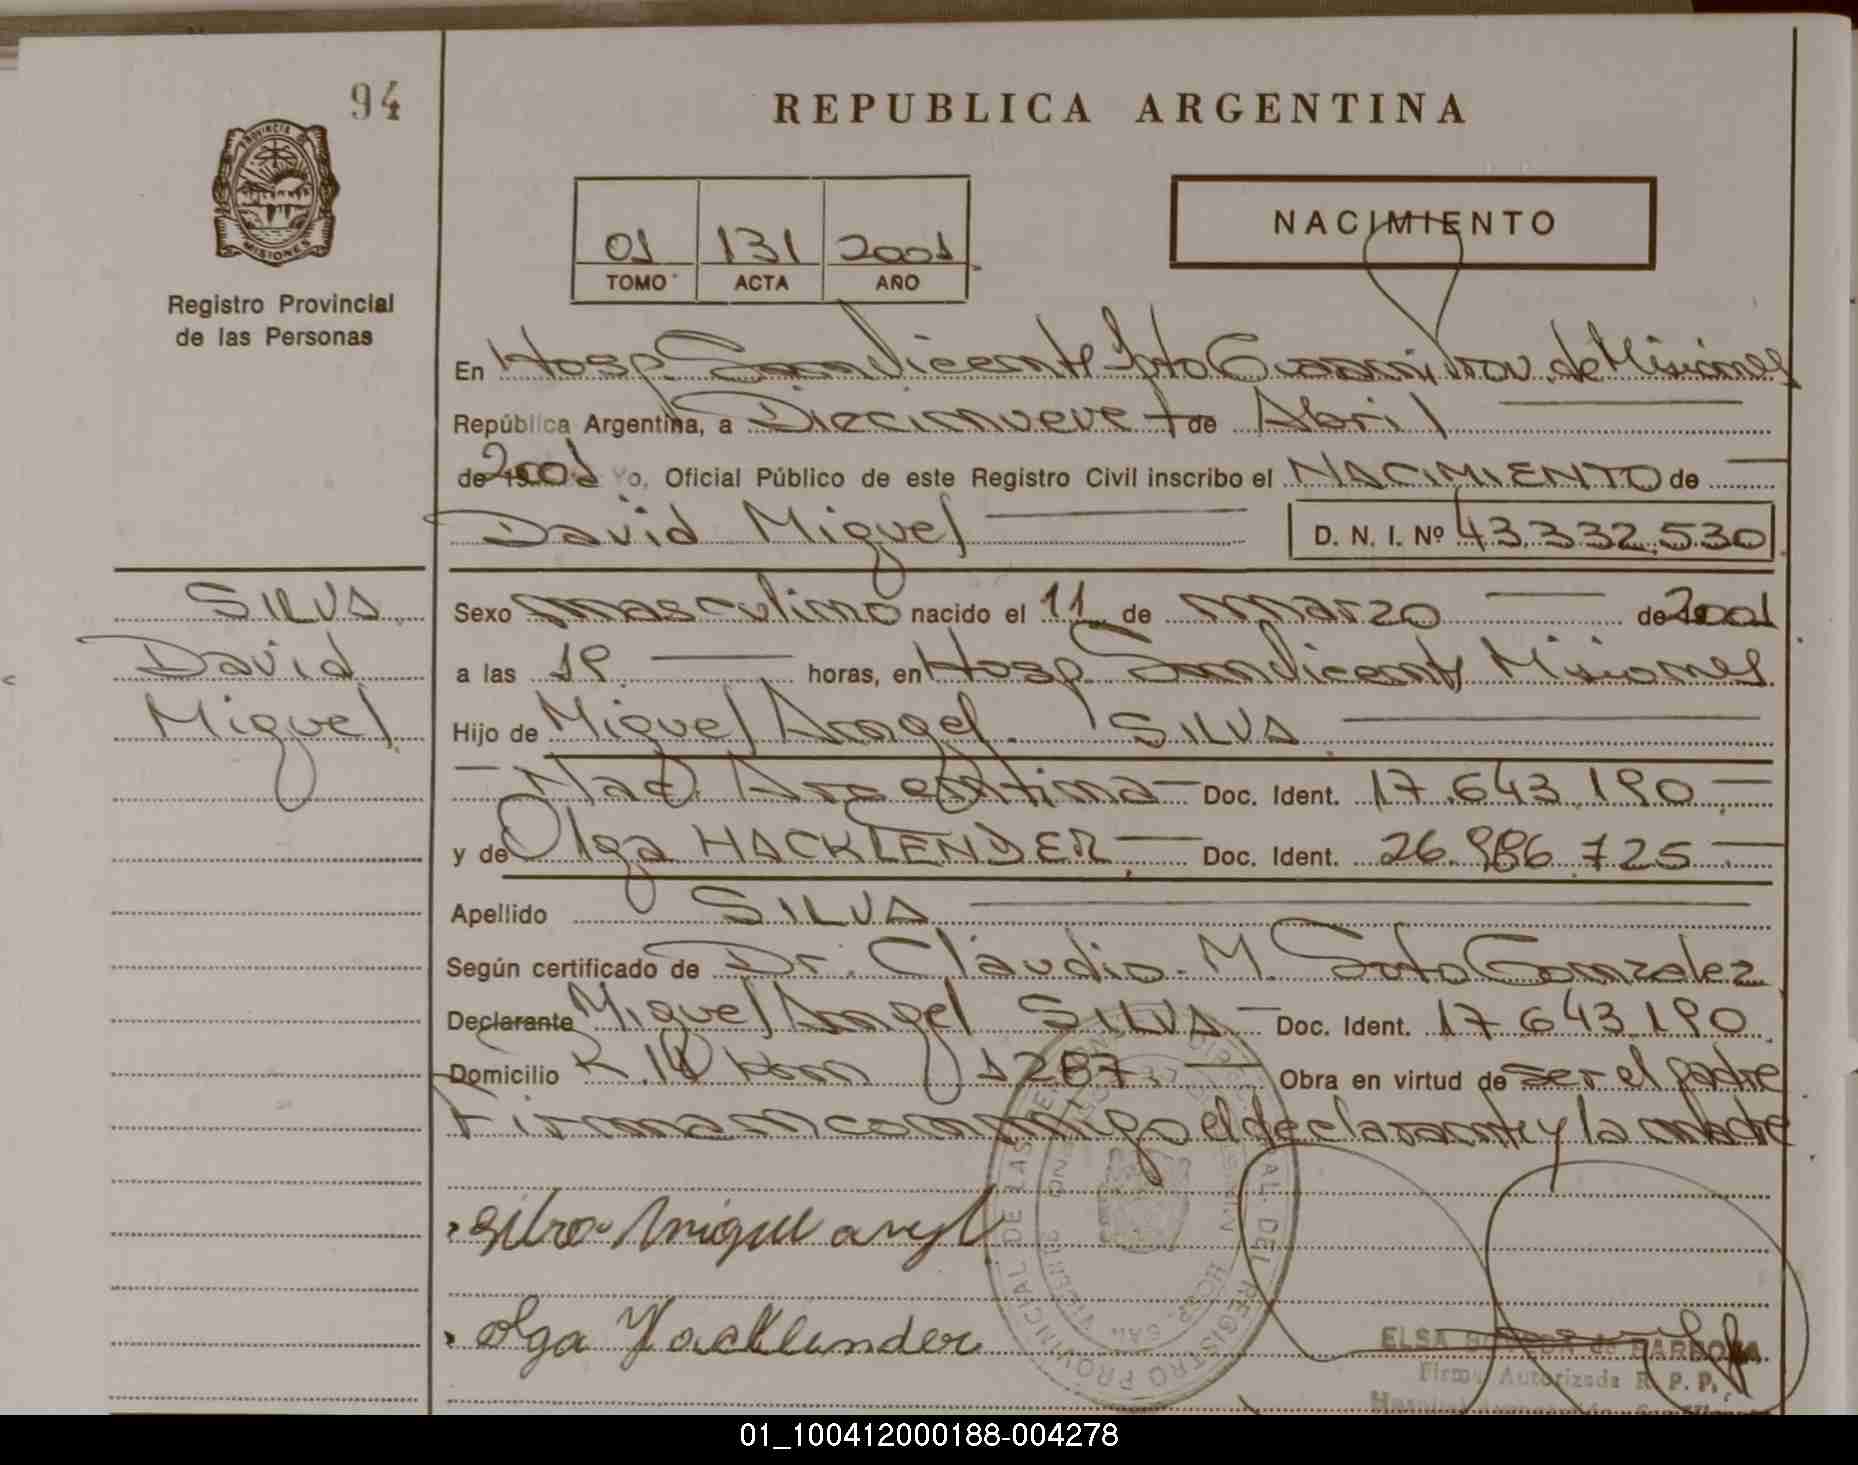 94
REPUBLICA ARGENTINA
PROVINCIA DE MISIONES
Registro Provincial
de las Personas
01 131 2001
TOMO ACTA AÑO
NACIMIENTO
En Hosp. San Vicente Dpto Guarani, Prov. de Misiones
República Argentina, a Diecinueve de Abril
de 2001 Yo, Oficial Público de este Registro Civil inscribo el NACIMIENTO de
David Miguel D. N. I. Nº 43.332.530
SILVA
David
Miguel
Sexo masculino nacido el 11 de marzo de 2001
a las 19 horas, en Hosp. San Vicente Misiones
Hijo de Miguel Angel SILVA
Nac. Argentina Doc. Ident. 17.643.190
y de Olga HACKLENDER Doc. Ident. 26.986.725
Apellido SILVA
Según certificado de Dr. Claudio M. Soto Gonzalez
Declarante Miguel Angel SILVA Doc. Ident. 17.643.190
Domicilio R. 14 km 1287 Obra en virtud de ser el padre
Firman conmigo el declarante y la madre
Silva Miguel angel
olga Hacklender
REGISTRO PROVINCIAL DE LAS
ELSA de BARBOZA
Firma Autorizada R. P. P.
01_100412000188-004278